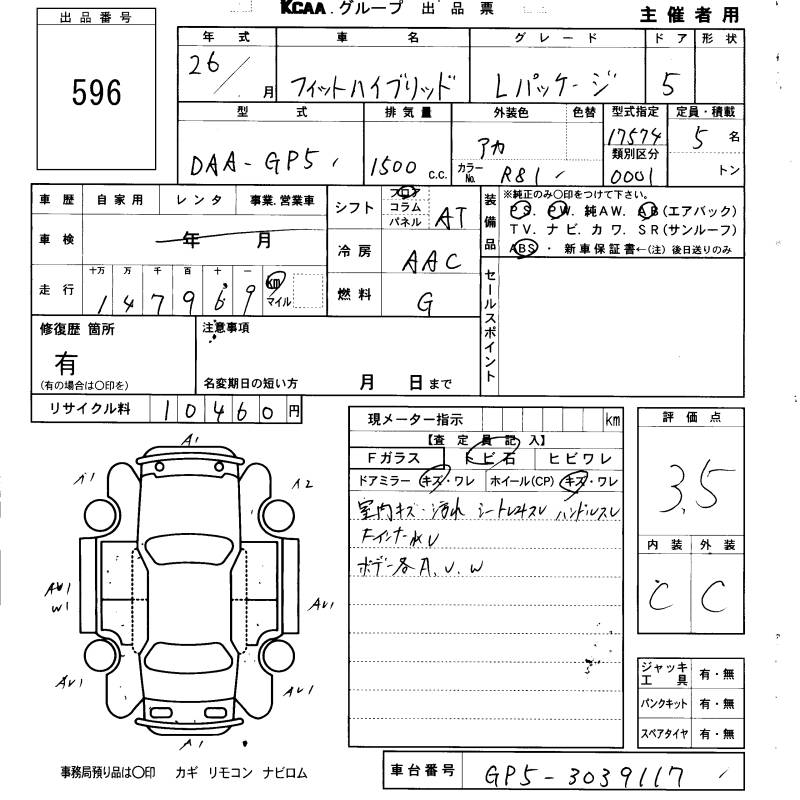 KCAA.グループ 出品票 主催者用
出品番号
596
年式 車名 グレード ドア 形状
26/月 フィットハイブリッド Lパッケージ 5
型式 排気量 外装色 色替 型式指定 定員・積載
DAA-GP5 1500 c.c. アカ カラーNo. R81 17574 類別区分 0001 5名 トン
車歴 自家用 レンタ 事業.営業車
車検 年 月
走行 十万 万 千 百 十 一
147969 km マイル
シフト フロア コラム パネル AT
冷房 AAC
燃料 G
装備品 ※純正のみ〇印をつけて下さい。
PS. PW. 純AW. AB(エアバック)
TV. ナビ. カワ. SR(サンルーフ)
ABS・ 新車保証書←(注)後日送りのみ
セールスポイント
修復歴 箇所
有
(有の場合は〇印を)
注意事項
名変期日の短い方 月 日まで
リサイクル料 10460円
現メーター指示 km
【査定員記入】
Fガラス トビ石 ヒビワレ
ドアミラー キズ・ワレ ホイール(CP) キズ・ワレ
室内キズ・汚れ シート ハンドルスレ
ボデー各A.U.W
評価点
3.5
内装 外装
C C
A1
A1 A2
AU1
W1
AU1
AU1 AU1
A1
ジャッキ工具 有・無
パンクキット 有・無
スペアタイヤ 有・無
事務局預り品は〇印 カギ リモコン ナビロム
車台番号 GP5-3039117